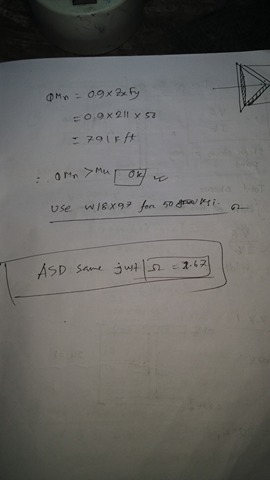 ΦMn = 0.9 x Zx Fy
= 0.9 x 211 x 50
= 791 k ft
∴ ΦMn > Mu OK
Use W18X97 for 50 ksi.
Ω
ASD same just Ω = 1.67